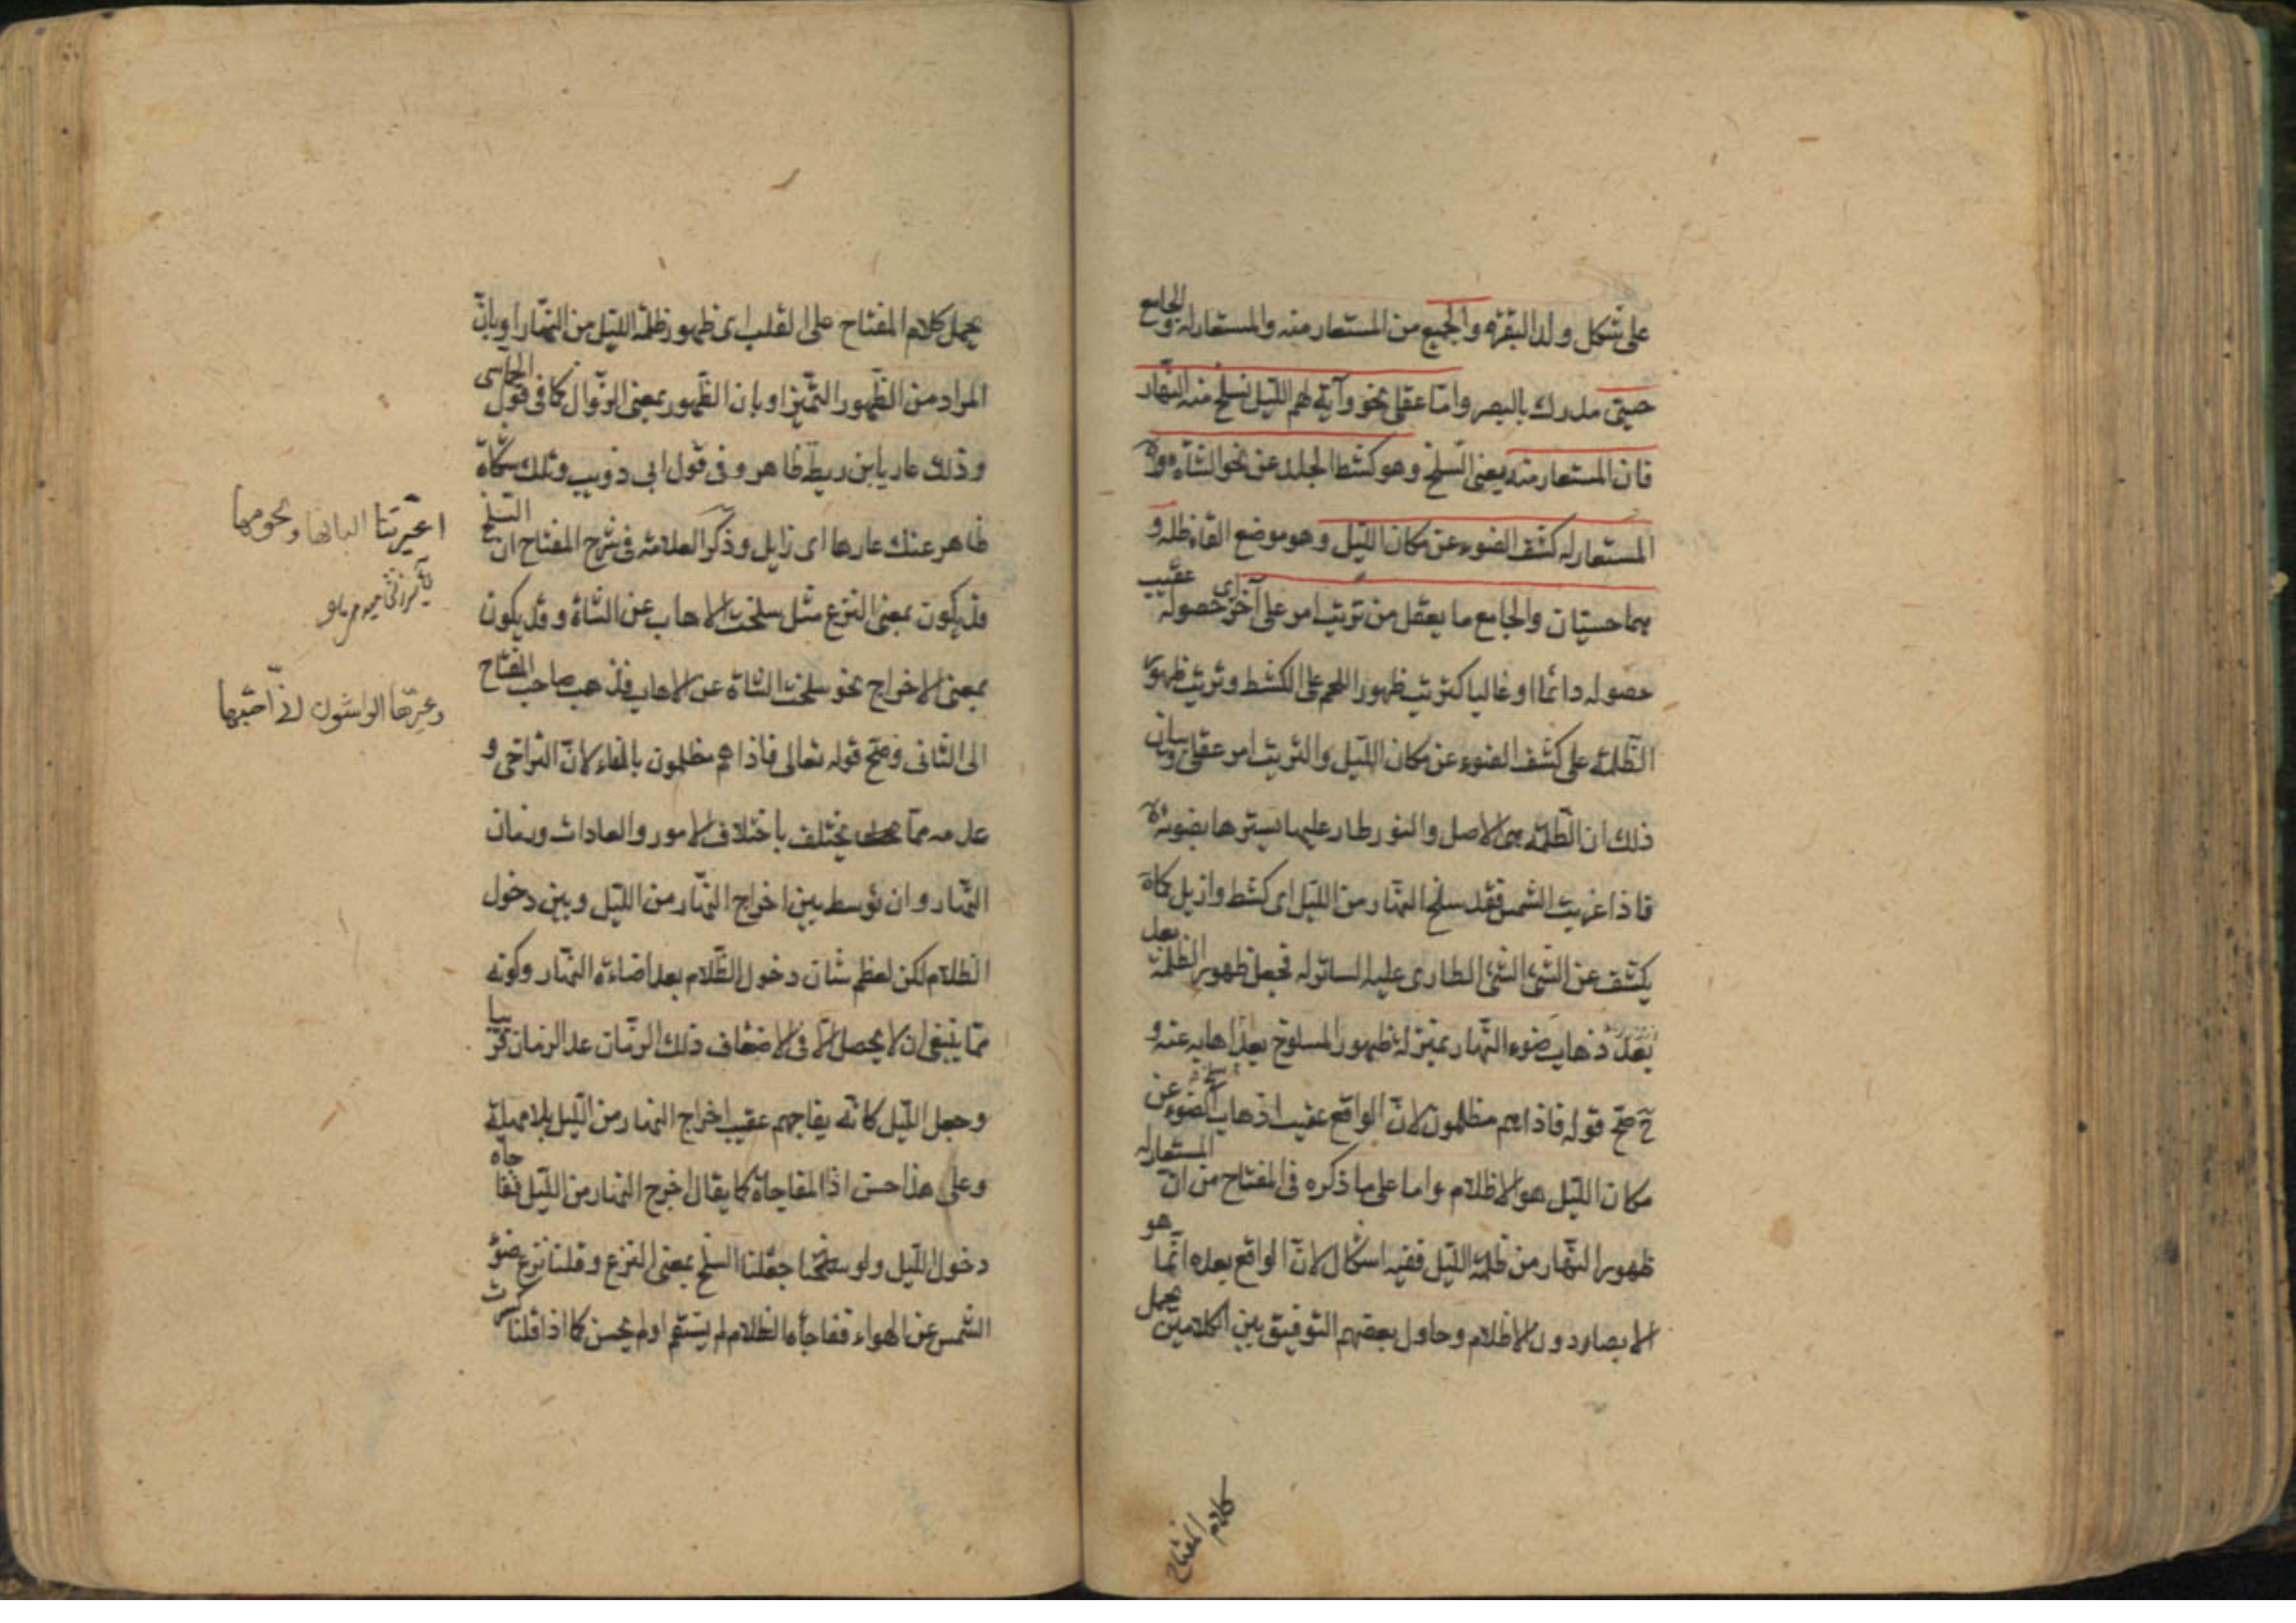 على شكل ولد البقرة والجميع من المستعار منه والمستعار له والجامع
حسّي مدرك بالبصر وامّا عقلى نحو وآية لهم اللّيل نسلخ منه النّهار
فان المستعار منه يعنى السلخ وهو كشط الجلد عن نحو الشاة و
المستعار له كشف الضوء عن مكان اللّيل وهو موضع القاء ظله و
هما حسيّان والجامع ما يعقل من ترتب امر على آخر اى حصوله عقيب
حصوله دائما او غالبا كترتب ظهور اللحم على الكشط وترتب ظهور
الظّلمة على كشف الضوء عن مكان اللّيل والترتب امر عقلى وبيان
ذلك ان الظّلمة هى الاصل والنور طار عليها يسترها بضوئه
فاذا غربت الشمس فقد سلخ النّهار من اللّيل اى كشط وازيل كما
يكشف عن الشئ الشئ الطارى عليه الساتر له فجعل ظهور الظلمة بعد
ذهاب ضوء النّهار بمنزلة ظهور المسلوخ بعد اهابه عنه و
ح صحّ قوله فاذا هم مظلمون لانّ الواقع عقيب اذهاب الضوء عن
مكان اللّيل هو الاظلام واما على ما ذكره فى المفتاح من انّ المستعار له
ظهور النّهار من ظلمة اللّيل ففيه اشكال لانّ الواقع بعده انّما هو
الابصار دون الاظلام وحاول بعضهم التوفيق بين الكلامين بحمل
كلام المفتاح
يحمل كلام المفتاح على القلب اى ظهور ظلمة اللّيل من النّهار او بانّ
المراد من الظّهور التّميّز او بان الظّهور بمعنى الزّوال كما فى قول الحماسى
وذلك عار يا ابن ريطة ظاهر وفى قول ابى ذويب وتلك شكاة
ظاهر عنك عارها اى زايل وذكر العلامة فى شرح المفتاح ان السلخ
قد يكون بمعنى النزع مثل سلخت الاهاب عن الشاة وقد يكون
بمعنى الاخراج نحو سلخت الشاة عن الاهاب فذهب صاحب المفتاح
الى الثانى وصحّ قوله تعالى فاذا هم مظلمون بالفاء لانّ التراخى و
عدمه ممّا يختلف باختلاف الامور والعادات وزمان
النّهار وان توسط بين اخراج النّهار من اللّيل وبين دخول
الظلام لكن لعظم شان دخول الظّلام بعد اضاءة النّهار وكونه
ممّا ينبغى ان لا يحصل الّا فى الاضعاف ذلك الزمان عد الزمان قريبا
وجعل اللّيل كانّه يفاجهم عقيب اخراج النهار من اللّيل بلا مهلة
وعلى هذا حسن اذا المفاجاة كما يقال اخرج النهار من اللّيل ففاجاه
دخول اللّيل ولو جعلنا السلخ بمعنى النزع وقلنا نزع ضوء
الشمس عن الهواء ففاجأه الظلام لم يستقم او لم يحسن كما اذا قلنا كسرت
اعيّرتنا البانها ولحومها
وعيّرها الواشون انّى احبّها